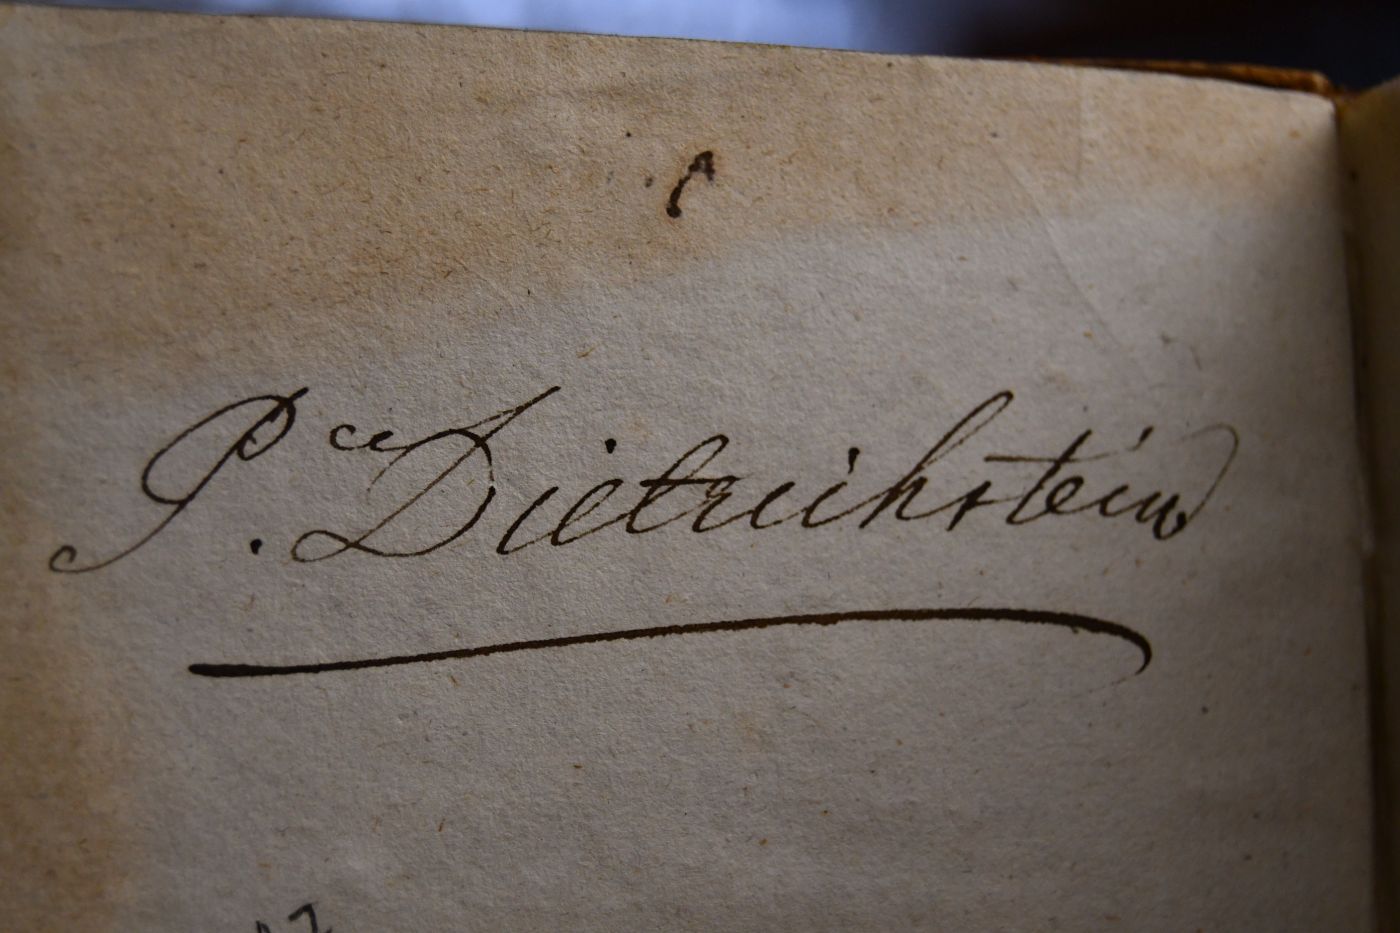 P.ce Dietrichstein